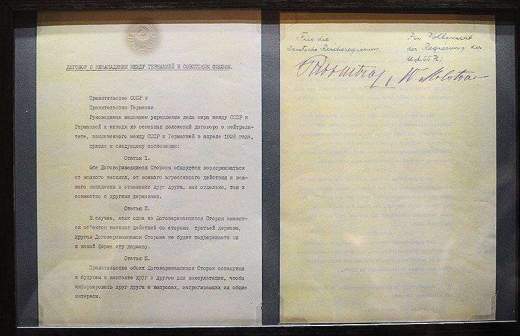 ДОГОВОР О НЕНАПАДЕНИИ МЕЖДУ ГЕРМАНИЕЙ И СОВЕТСКИМ СОЮЗОМ.
Правительство СССР и
Правительство Германии
Руководимые желанием укрепления дела мира между СССР и
Германией и исходя из основных положений договора о нейтрали-
тете, заключенного между СССР и Германией в апреле 1926 года,
пришли к следующему соглашению:
Статья I.
Обе Договаривающиеся Стороны обязуются воздерживаться
от всякого насилия, от всякого агрессивного действия и вся-
кого нападения в отношении друг друга, как отдельно, так и
совместно с другими державами.
Статья II.
В случае, если одна из Договаривающихся Сторон окажет-
ся объектом военных действий со стороны третьей державы,
другая Договаривающаяся Сторона не будет поддерживать ни
в какой форме эту державу.
Статья III.
Правительства обеих Договаривающихся Сторон останутся
в будущем в контакте друг с другом для консультации, чтобы
информировать друг друга о вопросах, затрагивающих их общие
интересы.
Für die
Deutsche Reichsregierung
In Vollmacht
der Regierung der
UdSSR